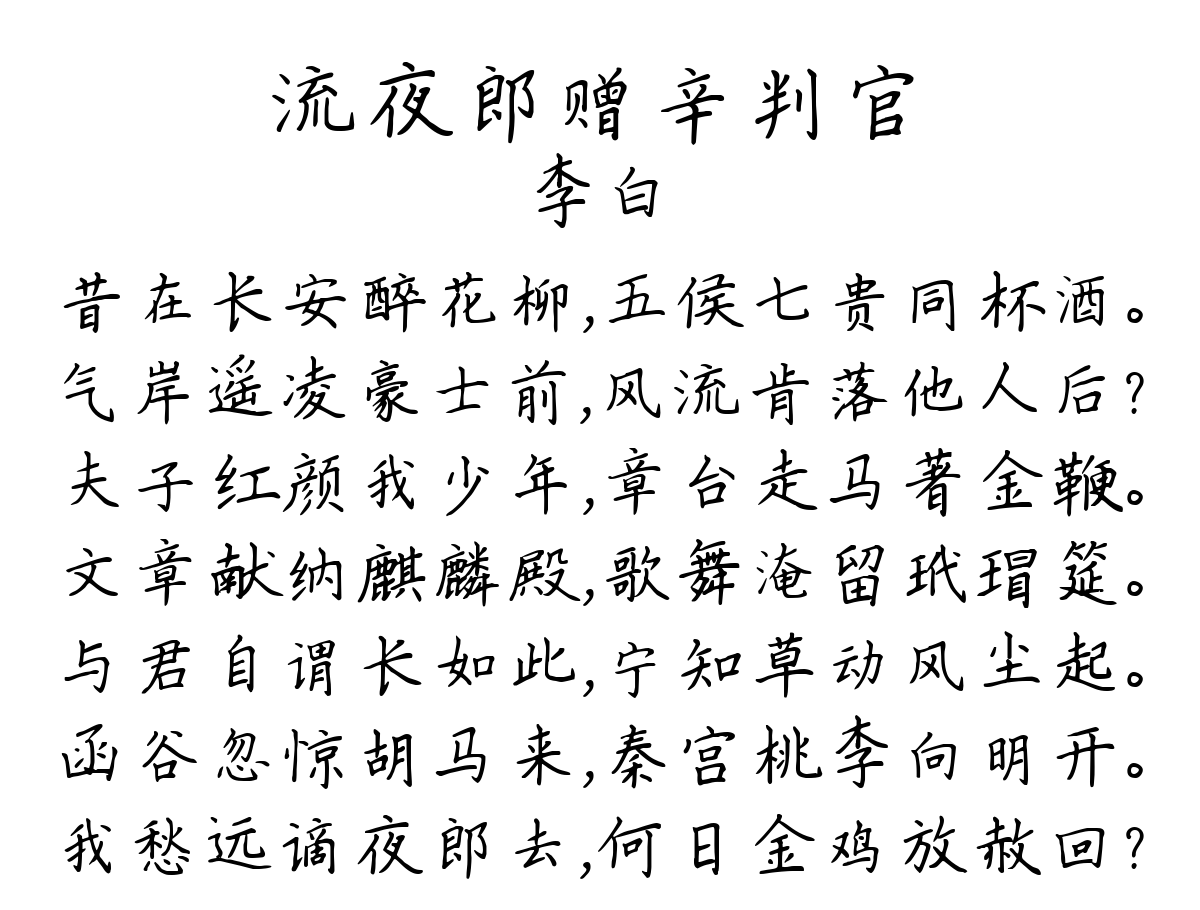 流夜郎赠辛判官
李白
昔在长安醉花柳,五侯七贵同杯酒。
气岸遥凌豪士前,风流肯落他人后?
夫子红颜我少年,章台走马著金鞭。
文章献纳麒麟殿,歌舞淹留玳瑁筵。
与君自谓长如此,宁知草动风尘起。
函谷忽惊胡马来,秦宫桃李向明开。
我愁远谪夜郎去,何日金鸡放赦回?